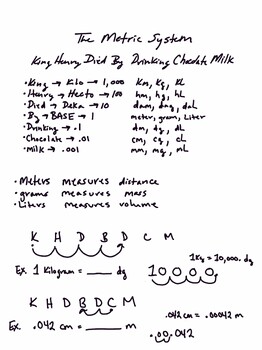 The Metric System
King Henry Died By Drinking Chocolate Milk
• King → Kilo → 1,000 km, kg, kL
• Henry → Hecto → 100 hm, hg, hL
• Died → Deka → 10 dam, dag, daL
• By → BASE → 1 meter, gram, Liter
• Drinking → .1 dm, dg, dL
• Chocolate → .01 cm, cg, cL
• Milk → .001 mm, mg, mL
• Meters measures distance
• grams measures mass
• Liters measures volume
K H D B D C M
1 Kg = 10,000. dg
Ex. 1 Kilogram = ____ dg 10000.
K H D B D C M
.042 cm = .00042 m
Ex. .042 cm = ____ m
.00.042